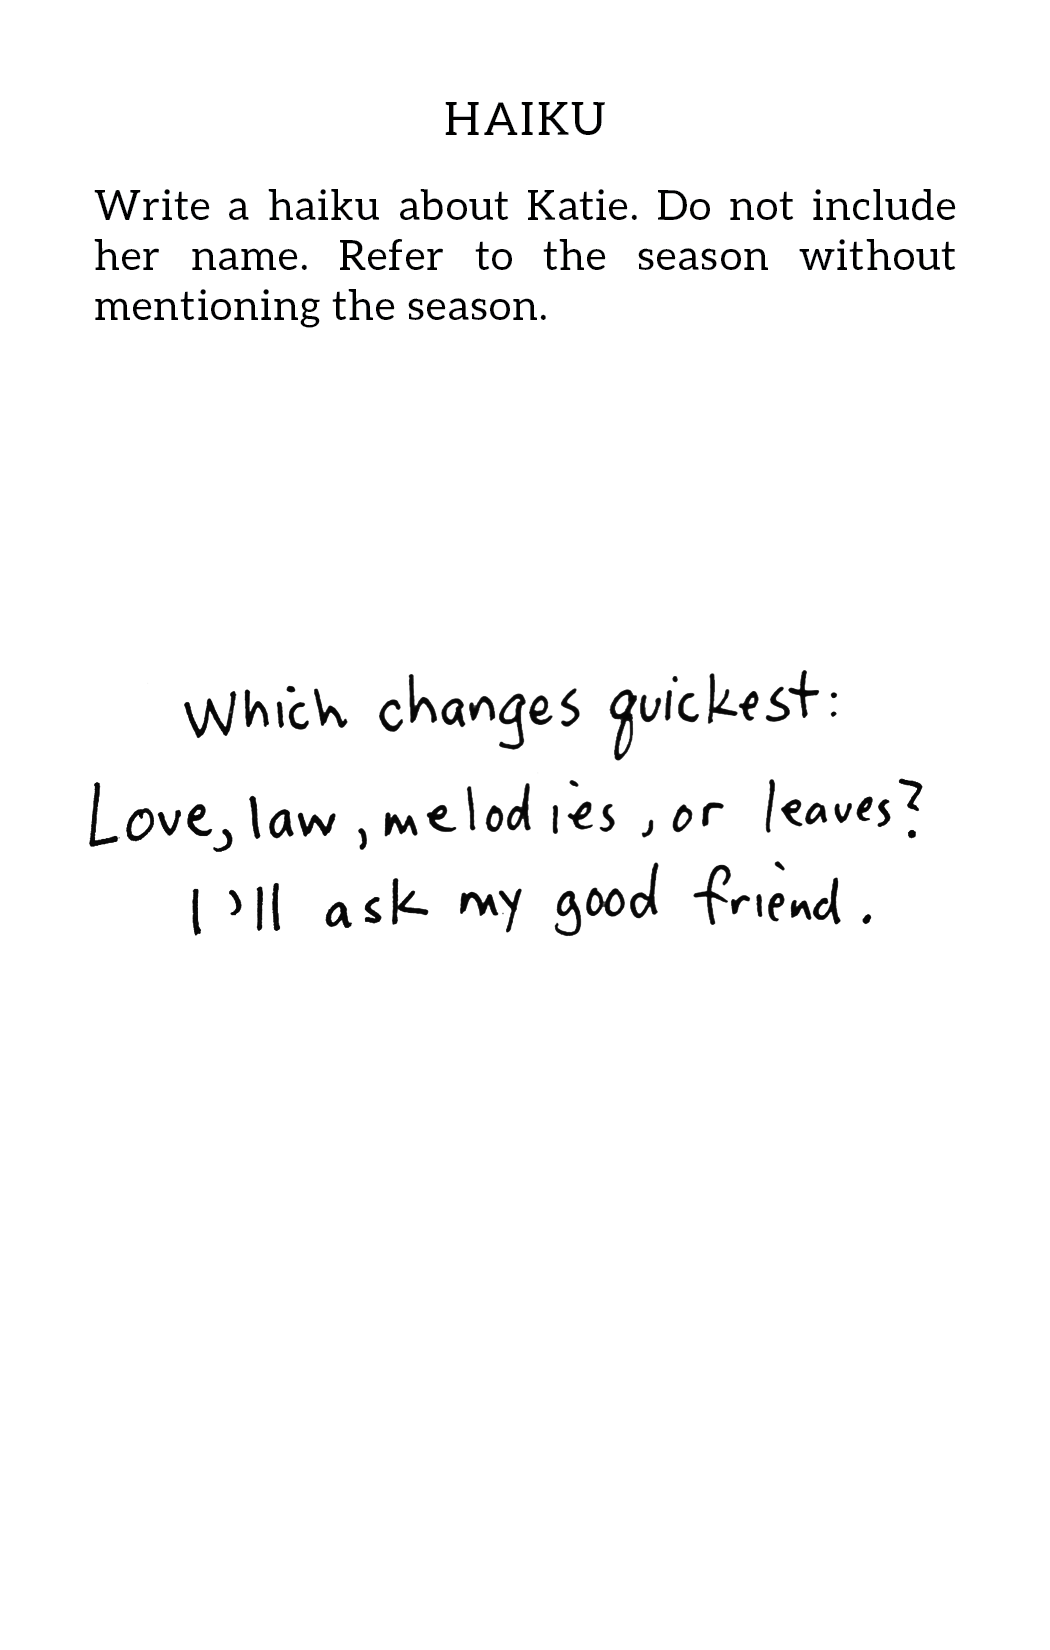 HAIKU
Write a haiku about Katie. Do not include
her name. Refer to the season without
mentioning the season.
Which changes quickest:
Love, law, melodies, or leaves?
I'll ask my good friend.